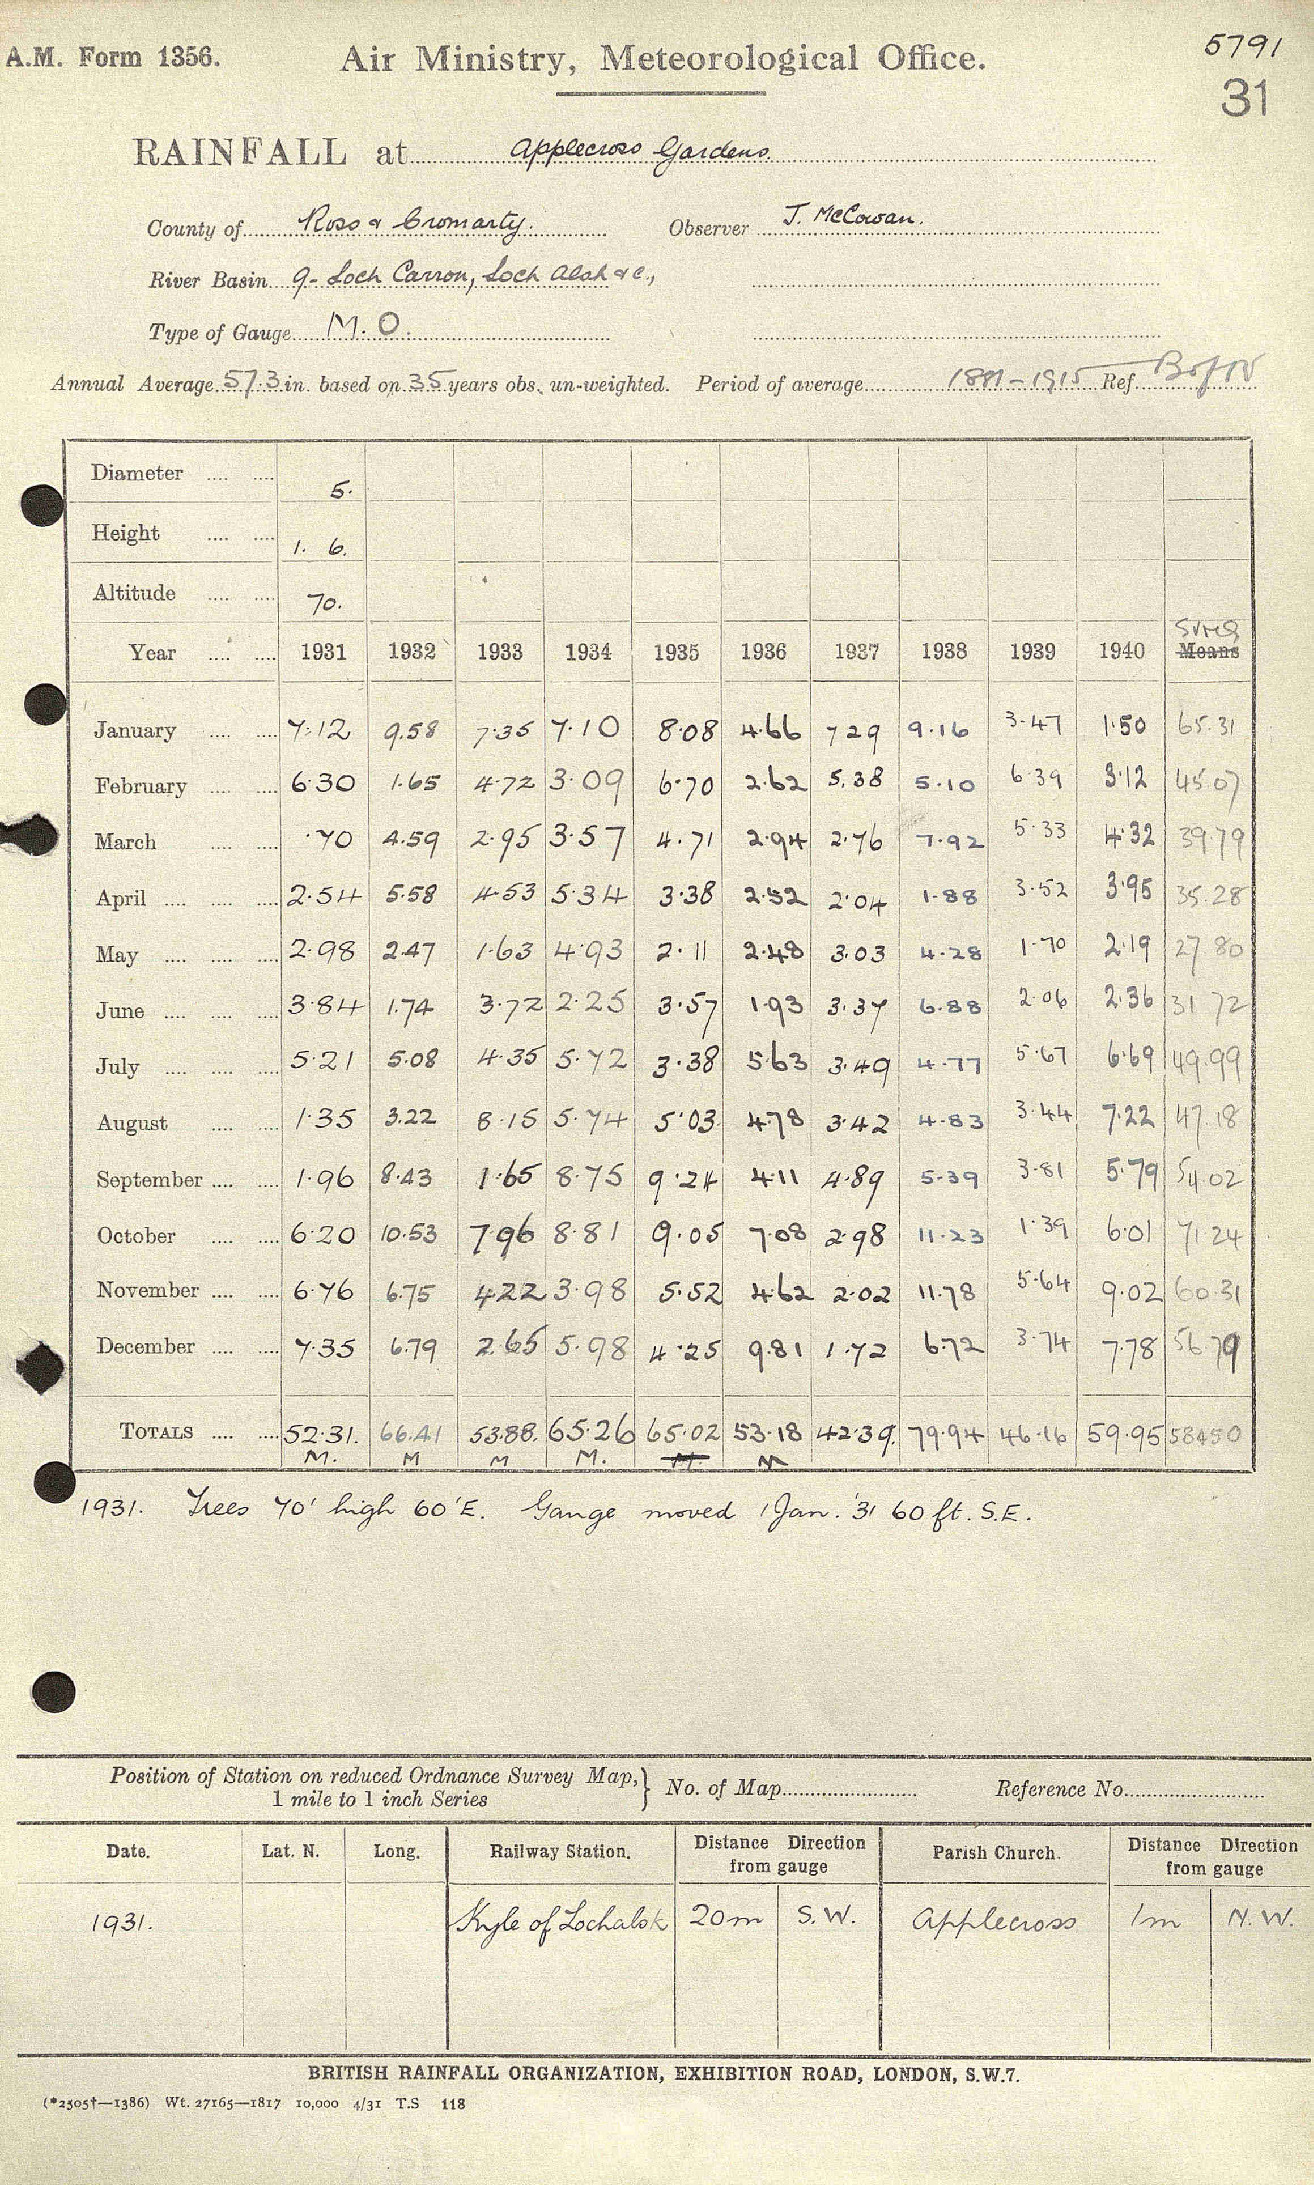 A.M. Form 1356.
Air Ministry, Meteorological Office.
5791
31
RAINFALL at Applecross Gardens.
County of Ross & Cromarty. Observer J. McCowan.
River Basin 9- Loch Carron, Loch Alsh &c.,
Type of Gauge M.O.
Annual Average 57.3 in. based on 35 years obs. un-weighted. Period of average 1881-1915 Ref.
Diameter .... .... 5.
Height .... .... 1. 6.
Altitude .... .... 70.
Year .... .... 1931 1932 1933 1934 1935 1936 1937 1938 1939 1940 Sums Means
January .... .... 7.12 9.58 7.35 7.10 8.08 4.66 7 29 9.16 3.47 1.50 65.31
February .... .... 6.30 1.65 4.72 3.09 6.70 2.62 5.38 5.10 6.39 3.12 45.07
March .... .... .70 4.59 2.95 3.57 4.71 2.94 2.76 7.92 5.33 4.32 39.79
April .... .... .... 2.54 5.58 4.53 5.34 3.38 2.52 2.04 1.88 3.52 3.95 35.28
May .... .... .... 2.98 2.47 1.63 4.93 2.11 2.48 3.03 4.28 1.70 2.19 27 80
June .... .... .... 3.84 1.74 3.72 2.25 3.57 1.93 3.37 6.88 2.06 2.36 31 72
July .... .... .... 5.21 5.08 4.35 5.72 3.38 5.63 3.49 4.77 5.67 6.69 49.99
August .... .... 1.35 3.22 8.15 5.74 5.03 4.78 3.42 4.83 3.44 7.22 47.18
September .... .... 1.96 8.43 1.65 8.75 9.24 4.11 4.89 5.39 3.81 5.79 54.02
October .... .... 6.20 10.53 7.96 8.81 9.05 7.08 2.98 11.23 1.39 6.01 71 24
November .... .... 6.76 6.75 4.22 3.98 5.52 4.62 2.02 11.78 5.64 9.02 60.31
December .... .... 7.35 6.79 2.65 5.98 4.25 9.81 1.72 6.72 3.74 7.78 56 79
TOTALS .... .... 52.31. 66.41 53.88. 65.26 65.02 53.18 42.39. 79.94 46.16 59.95 584 50
M. M M M. M. M
1931. Trees 70' high 60'E. Gauge moved 1 Jan. '31 60 ft. S.E.
Position of Station on reduced Ordnance Survey Map,} No. of Map Reference No.
1 mile to 1 inch Series
Date. Lat. N. Long. Railway Station. Distance Direction from gauge Parish Church. Distance Direction from gauge
1931. Kyle of Lochalsh 20m S.W. Applecross 1m N.W.
BRITISH RAINFALL ORGANIZATION, EXHIBITION ROAD, LONDON, S.W.7.
(*2505†—1386) Wt. 27165—1817 10,000 4/31 T.S 118